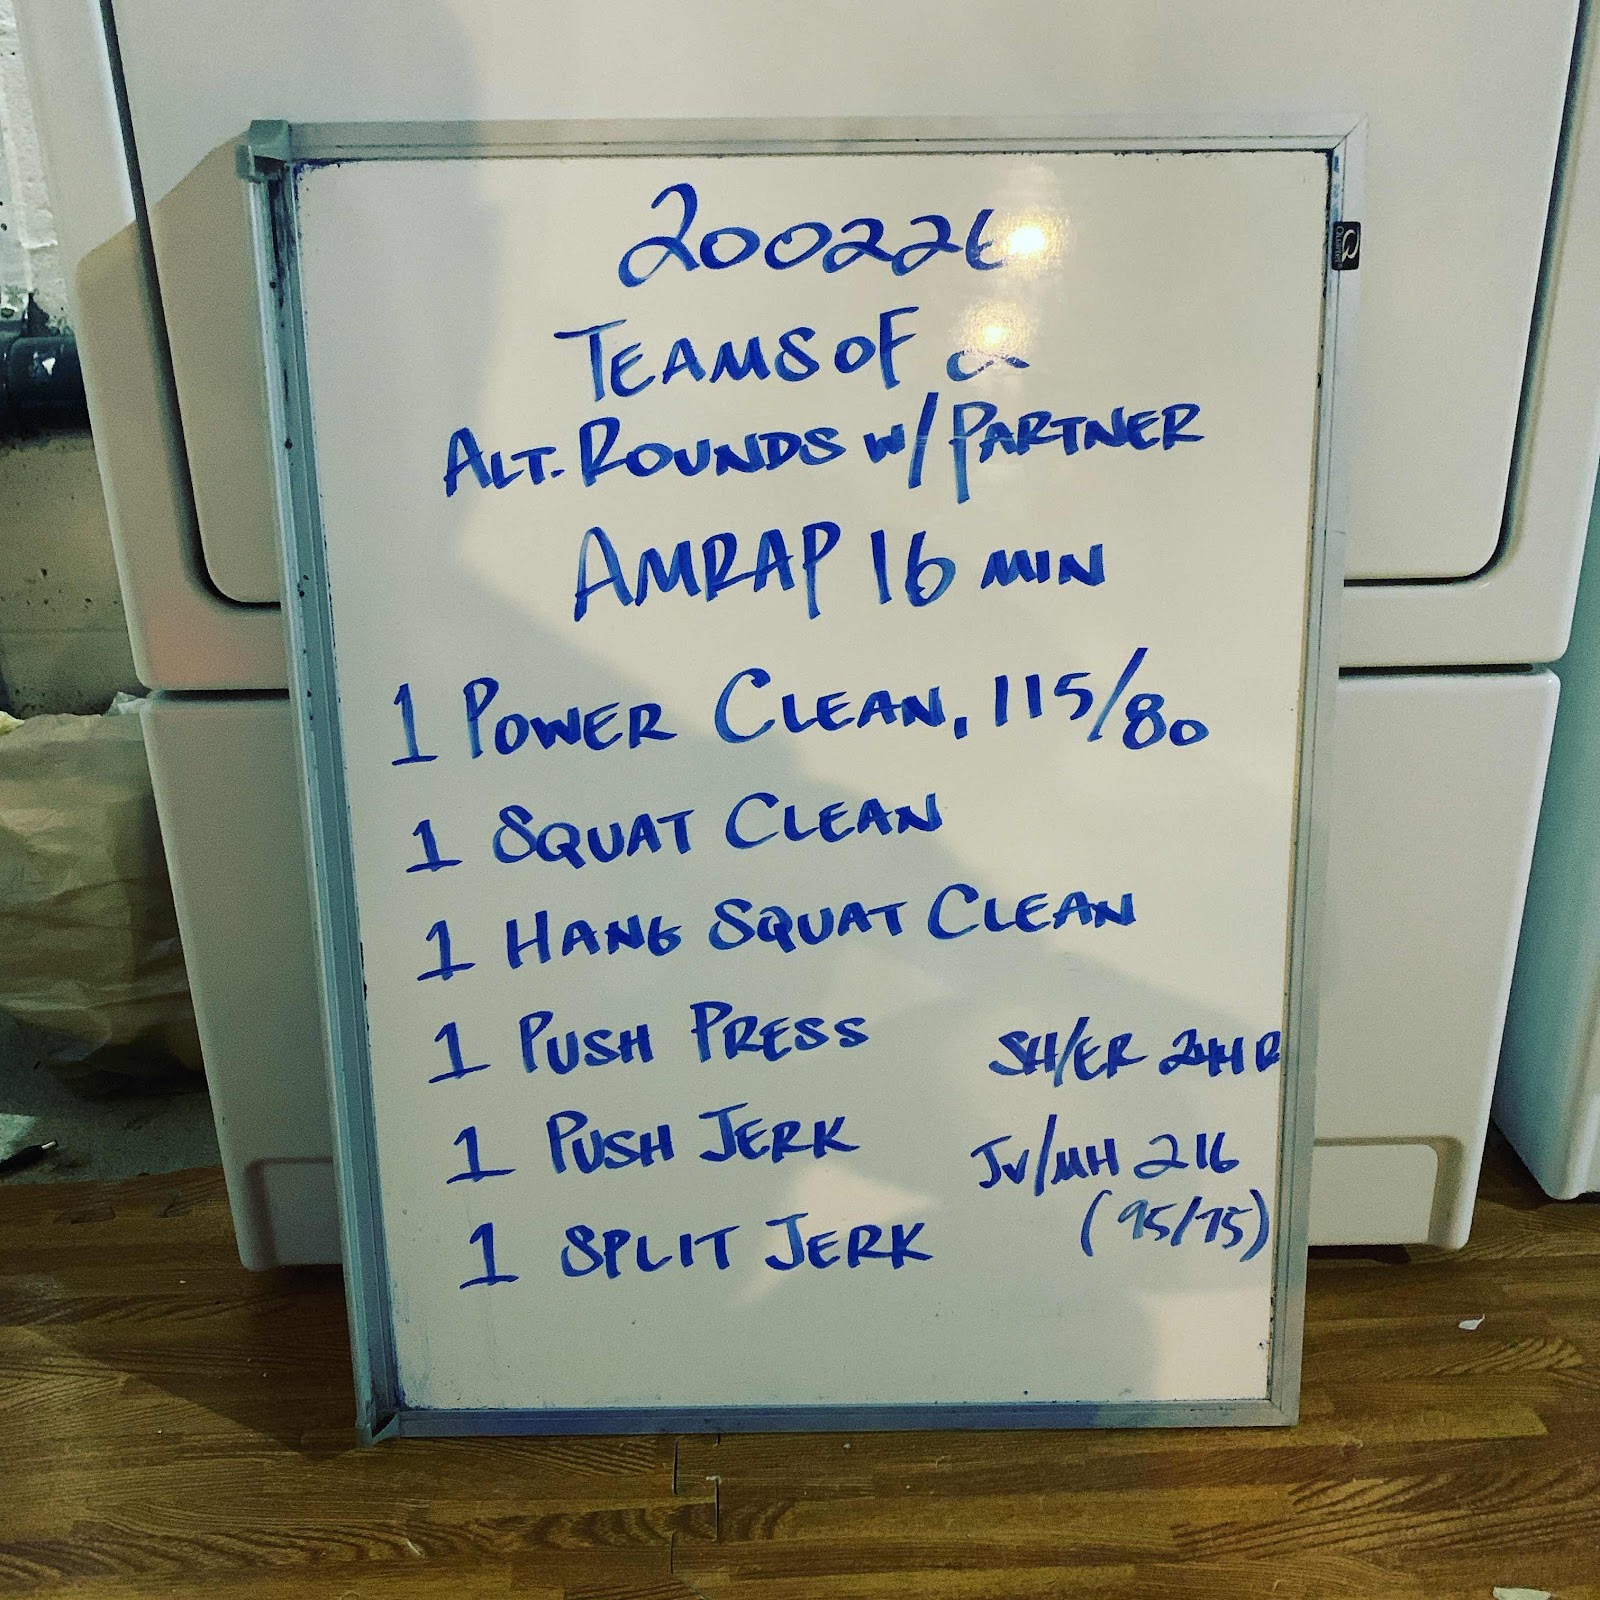 200226
TEAMS OF 2
ALT. ROUNDS W/ PARTNER
AMRAP 16 MIN
1 POWER CLEAN, 115/80
1 SQUAT CLEAN
1 HANG SQUAT CLEAN
1 PUSH PRESS
SH/ER
1 PUSH JERK
JV/MH 216
1 SPLIT JERK
(95/75)
Quartet